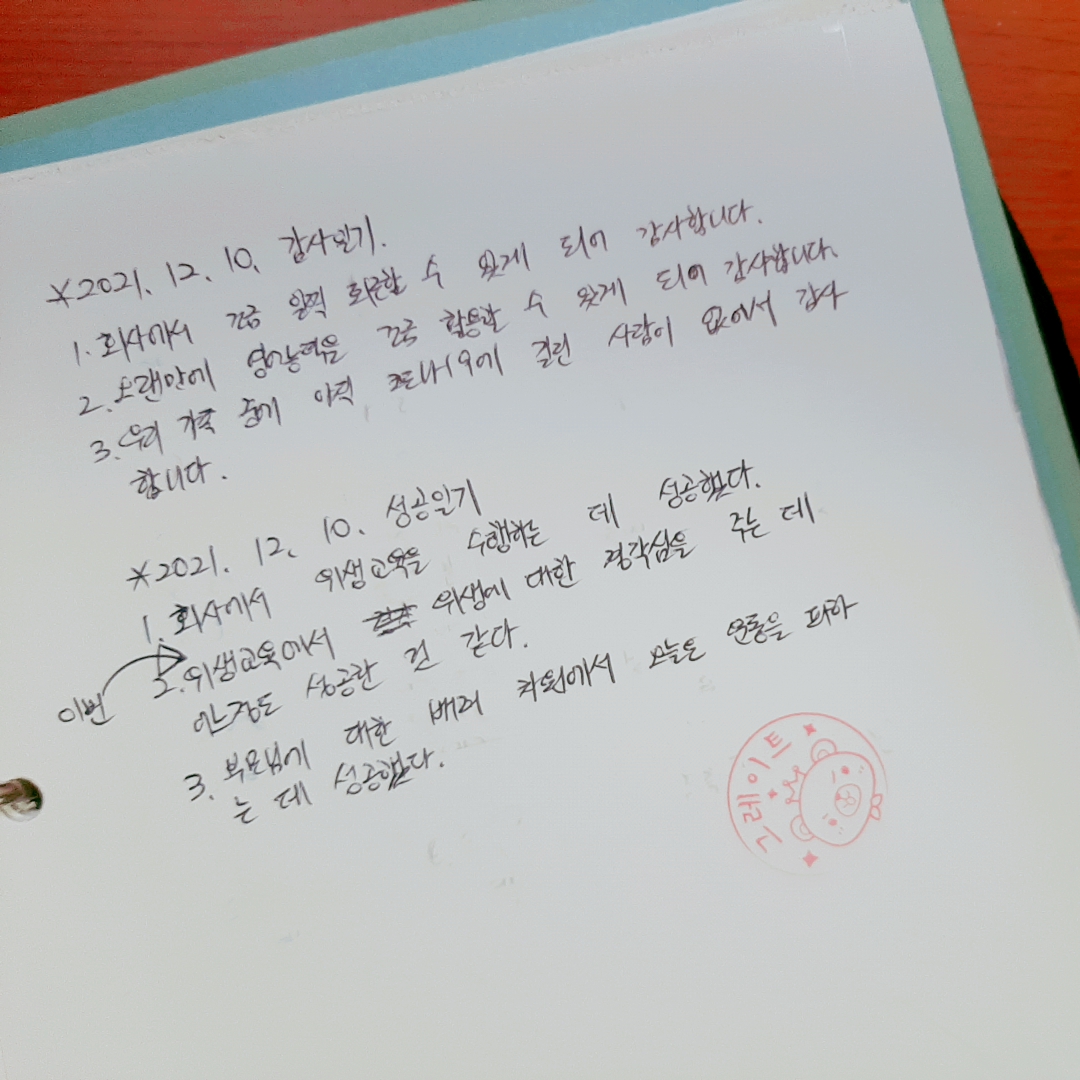 *2021. 12. 10. 감사일기.
1. 회사에서 조금 일찍 퇴근할 수 있게 되어 감사합니다.
2. 오랜만에 조금 활용할 수 있게 되어 감사합니다.
3. 우리 가족 중에 아직 코로나19에 걸린 사람이 없어서 감사
합니다.
*2021. 12. 10. 성공일기
1. 회사에서 위생교육을 수행하는 데 성공했다.
이번
2. 위생교육에서 위생에 대한 경각심을 주는 데
어느정도 성공한 것 같다.
3. 부모님에 대한 배려 차원에서 오늘은 운동을 피하
는 데 성공했다.
그레이트